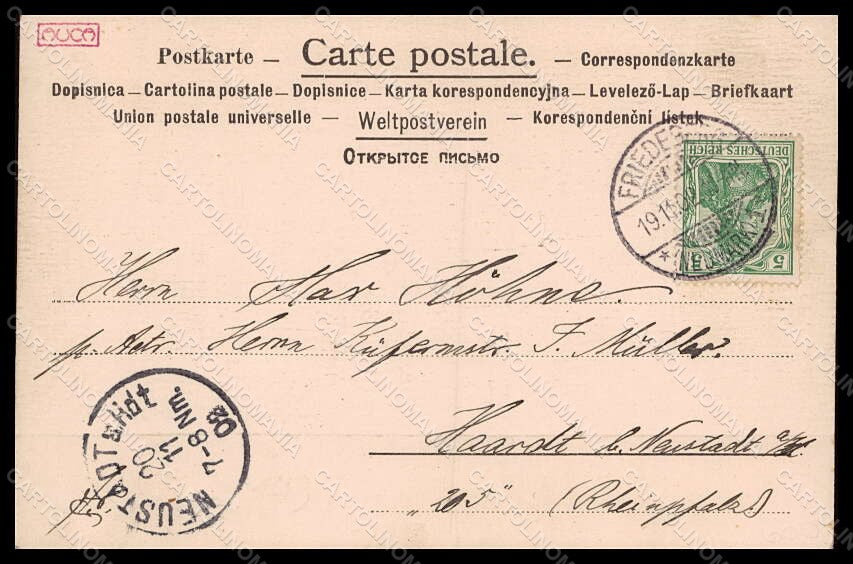 AUCA
Postkarte — Carte postale. — Correspondenzkarte
Dopisnica — Cartolina postale — Dopisnice — Karta korespondencyjna — Levelező-Lap — Briefkaart
Union postale universelle — Weltpostverein — Korespondenční lístek
Открытое письмо
DEUTSCHES REICH
5 5
19.11.02
Herrn Max Höhne.
p. Adr. Herrn Küfermstr. F. Müller.
NEUSTADT a. Hdt
20
11
7-8 Nm.
02
Haardt b. Neustadt a/H
"205" (Rheinpfalz!)
CARTOLINOMANIA